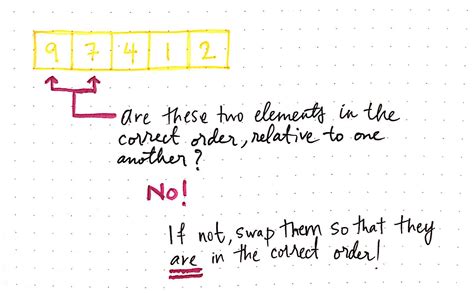 9 7 4 1 2
are these two elements in the
correct order, relative to one
another?
No!
If not, swap them so that they
are in the correct order!